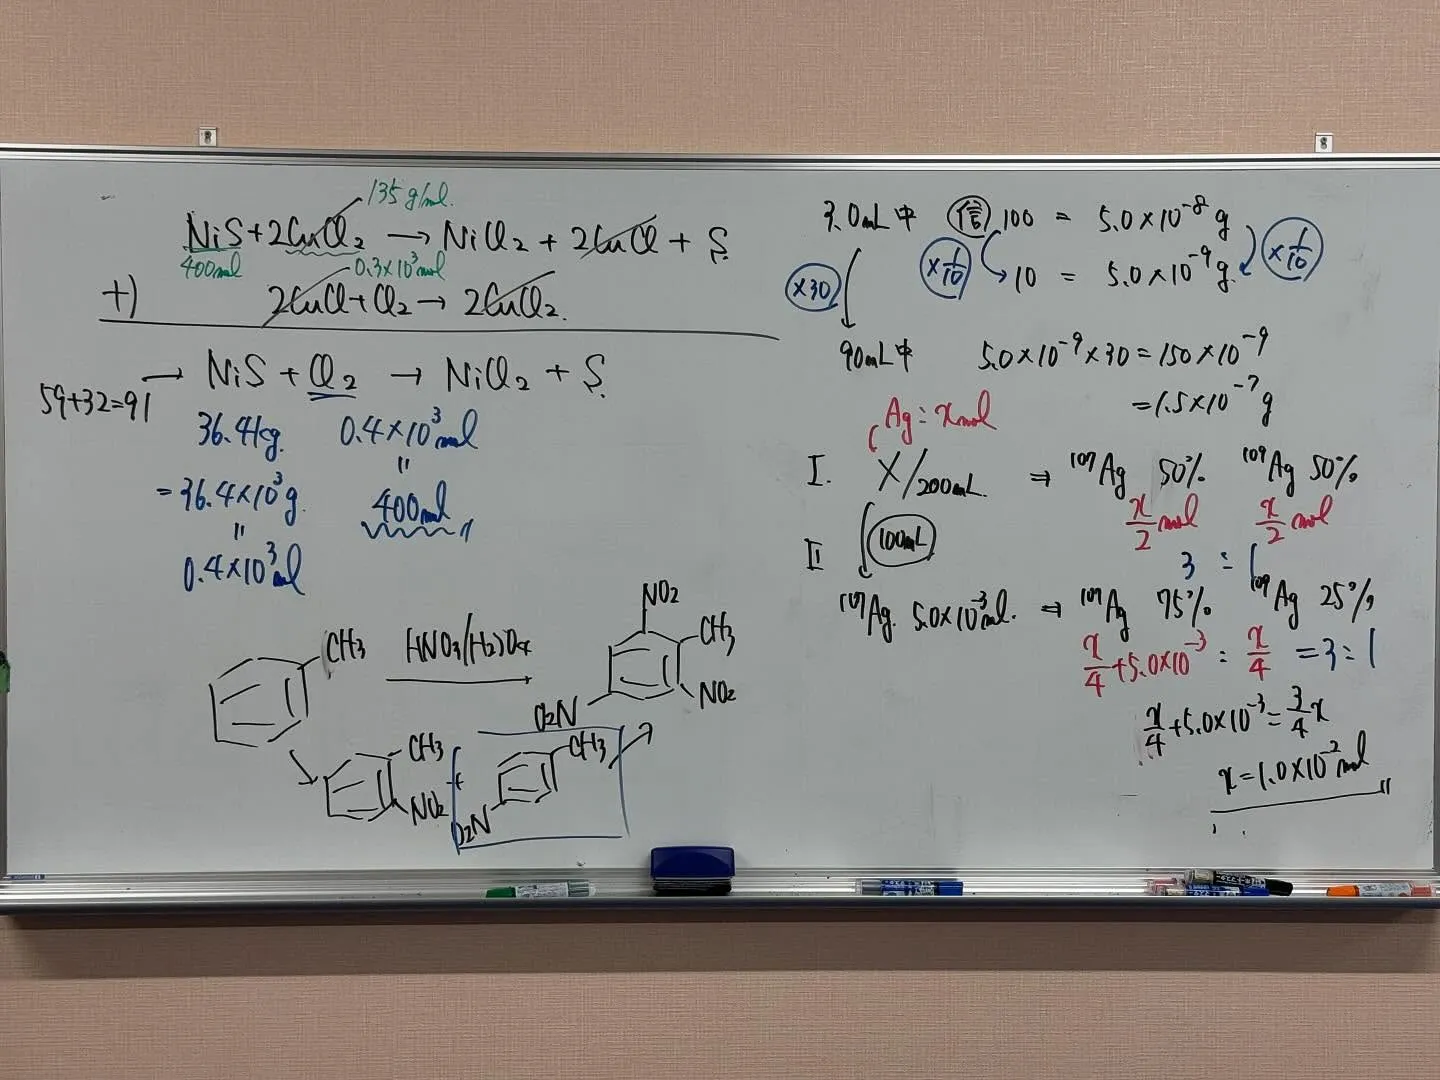 135 g/mol.
NiS+2CuCl₂ → NiCl₂ + 2CuCl + S.
400mol
0.3×10³mol
+) 2CuCl+Cl₂ → 2CuCl₂.
→ NiS + Cl₂ → NiCl₂ + S.
59+32=91
36.4kg. 0.4×10³mol
=36.4×10³g. = 400mol
= 0.4×10³mol
CH3 HNO3/H2SO4
NO2
CH3
NO2
O2N
CH3
NO2
+
CH3
O2N
3.0mL中 信 100 = 5.0×10⁻⁸g
×1/10 ×1/10
10 = 5.0×10⁻⁹g.
×30
90mL中 5.0×10⁻⁹×30=150×10⁻⁹
=1.5×10⁻⁷g
Ag: xmol
I. X/200mL. ⇒ ¹⁰⁷Ag 50% ¹⁰⁹Ag 50%
x/2 mol x/2 mol
100mL
3 : 1
II
¹⁰⁷Ag. 5.0×10⁻³mol. ⇒ ¹⁰⁷Ag 75% ¹⁰⁹Ag 25%
x/4+5.0×10⁻³ : x/4 = 3:1
x/4+5.0×10⁻³=3/4x
x=1.0×10⁻²mol